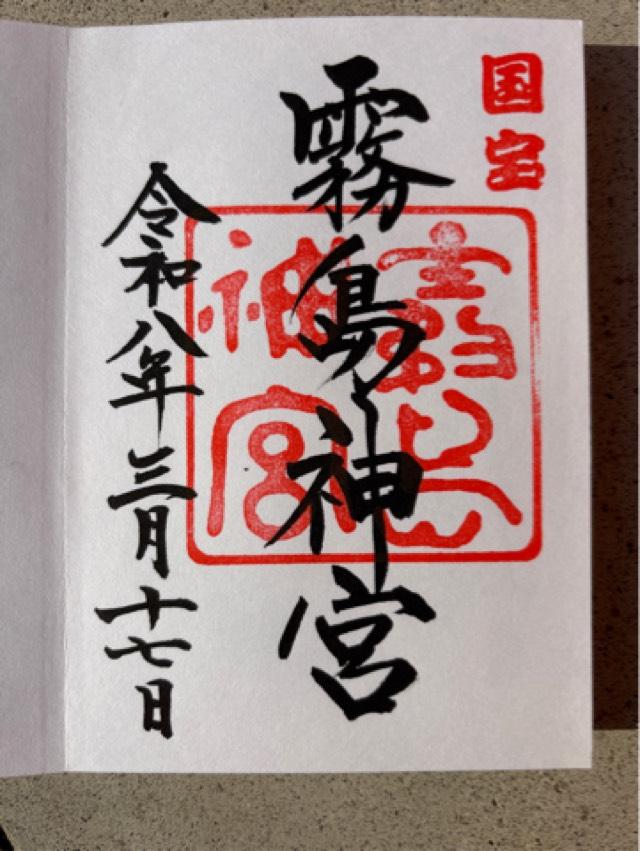 国宝
霧島神宮
霧島神宮
令和八年三月十七日